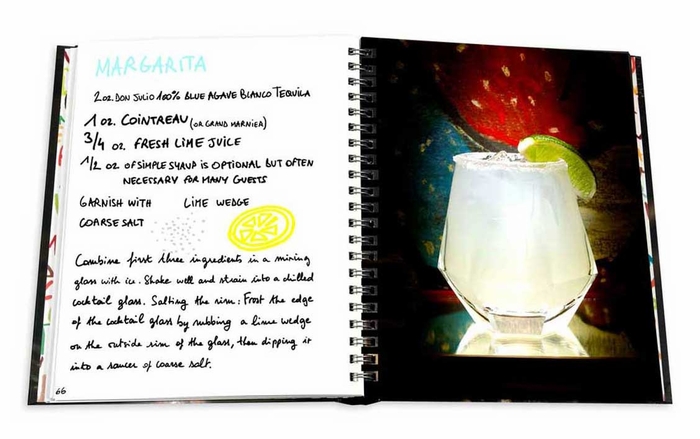 MARGARITA
2 oz. DON JULIO 100% BLUE AGAVE BLANCO TEQUILA
1 oz. COINTREAU (OR GRAND MARNIER)
3/4 oz. FRESH LIME JUICE
1/2 oz OF SIMPLE SYRUP IS OPTIONAL BUT OFTEN
NECESSARY FOR MANY GUESTS
GARNISH WITH LIME WEDGE
COARSE SALT
Combine first three ingredients in a mixing
glass with ice. Shake well and strain into a chilled
cocktail glass. Salting the rim: Frost the edge
of the cocktail glass by rubbing a lime wedge
on the outside rim of the glass, then dipping it
into a saucer of coarse salt.
66